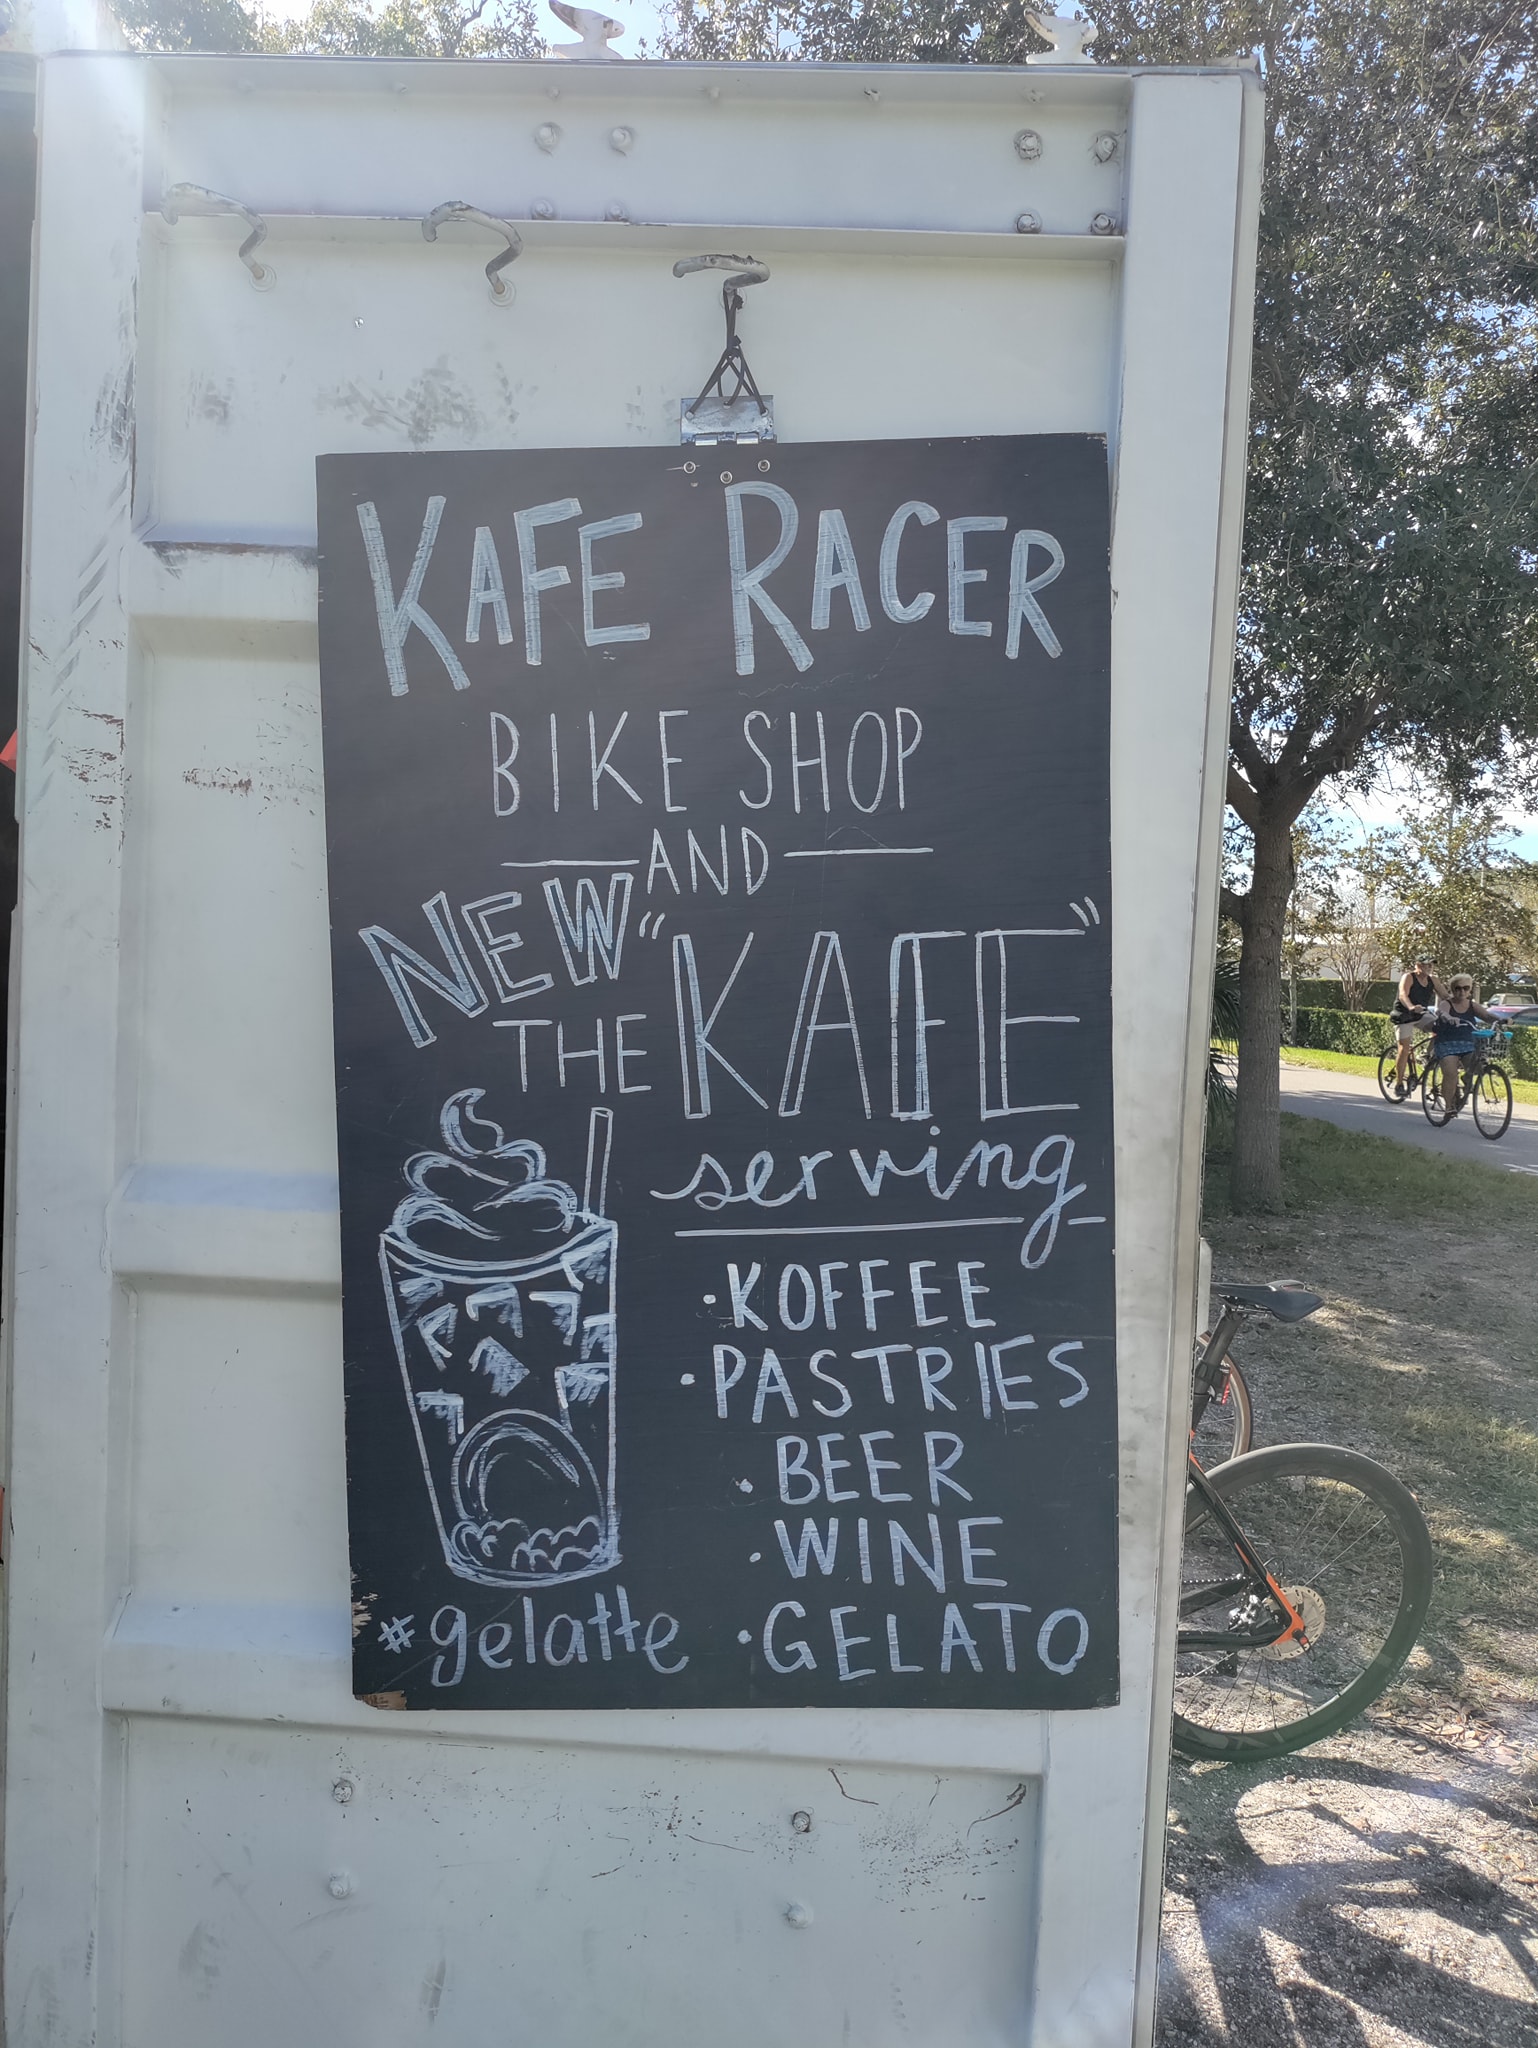 KAFE RACER
BIKE SHOP
AND
NEW
THE "KAFE"
serving
·KOFFEE
·PASTRIES
·BEER
·WINE
·GELATO
#gelatte